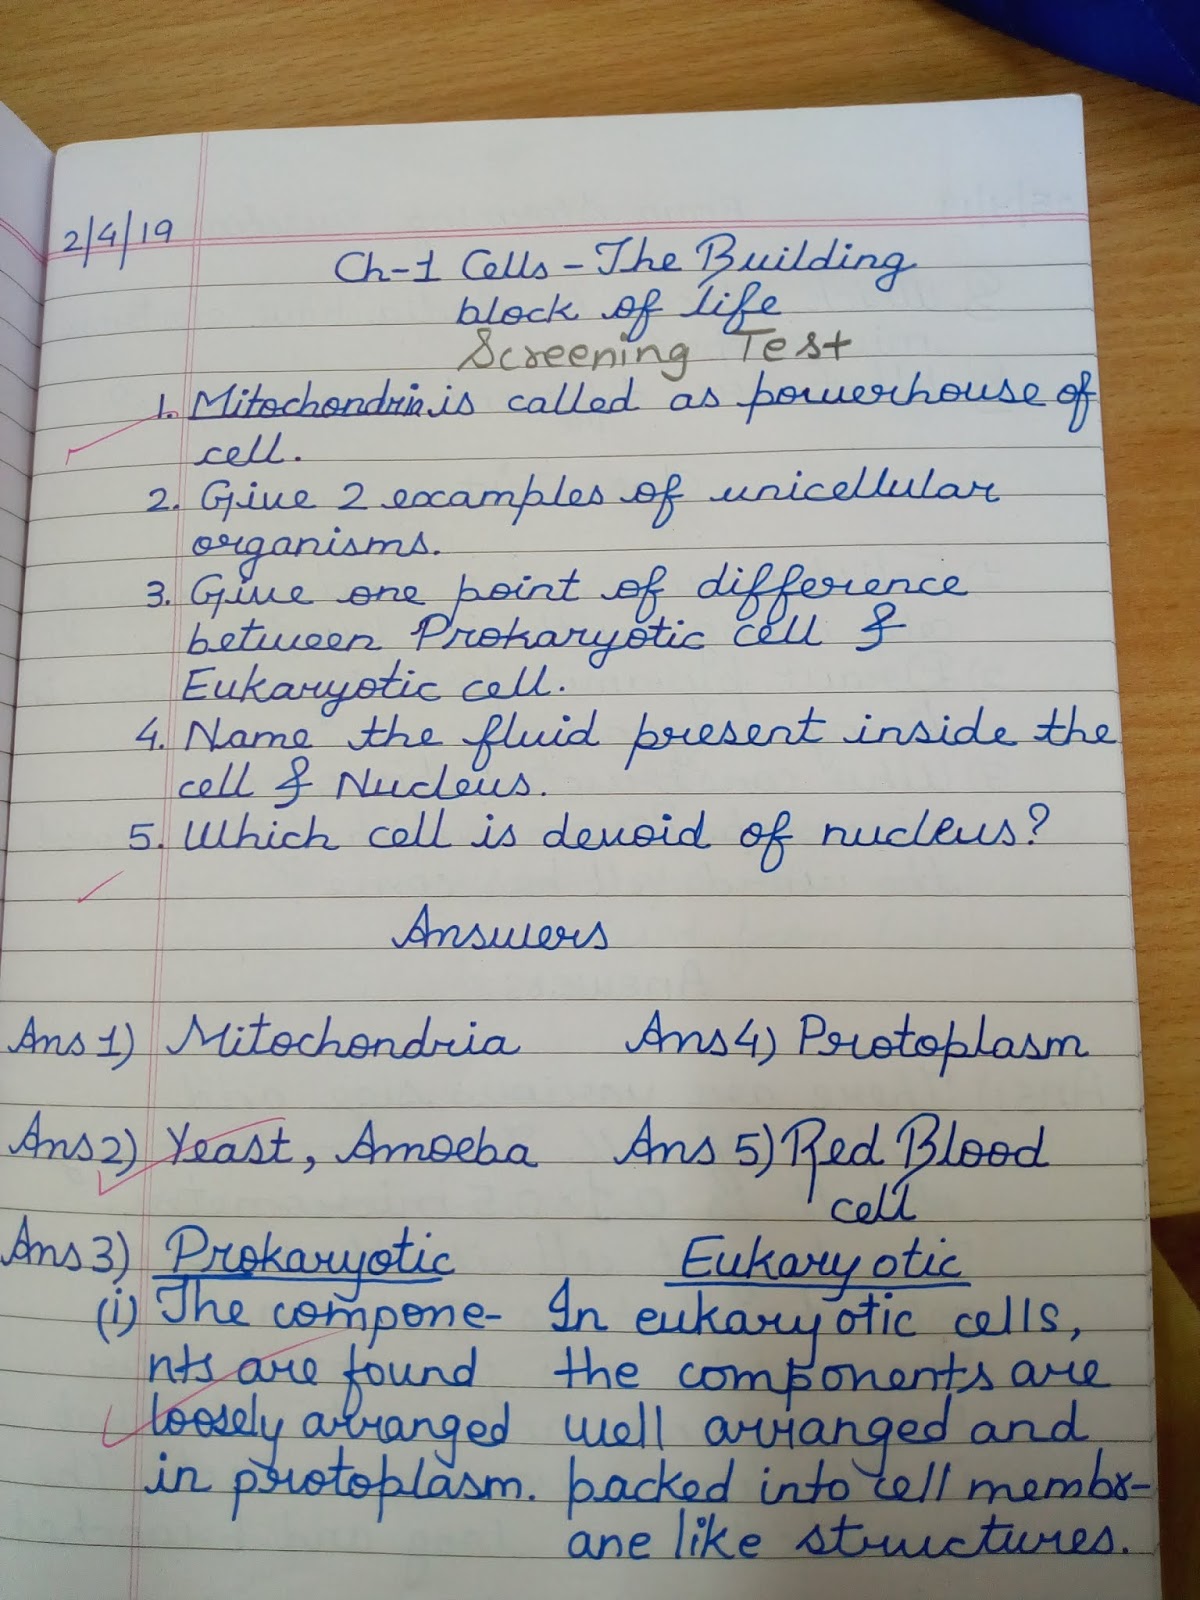 2/4/19
Ch-1 Cells - The Building
block of life
Screening Test
1. Mitochondria is called as powerhouse of
cell.
2. Give 2 examples of unicellular
organisms.
3. Give one point of difference
between Prokaryotic cell &
Eukaryotic cell.
4. Name the fluid present inside the
cell & Nucleus.
5. Which cell is devoid of nucleus?
Answers
Ans 1) Mitochondria Ans 4) Protoplasm
Ans 2) Yeast, Amoeba Ans 5) Red Blood
cell
Ans 3) Prokaryotic Eukaryotic
(i) The compone- In eukaryotic cells,
nts are found the components are
loosely arranged well arranged and
in protoplasm. packed into cell membr-
ane like structures.